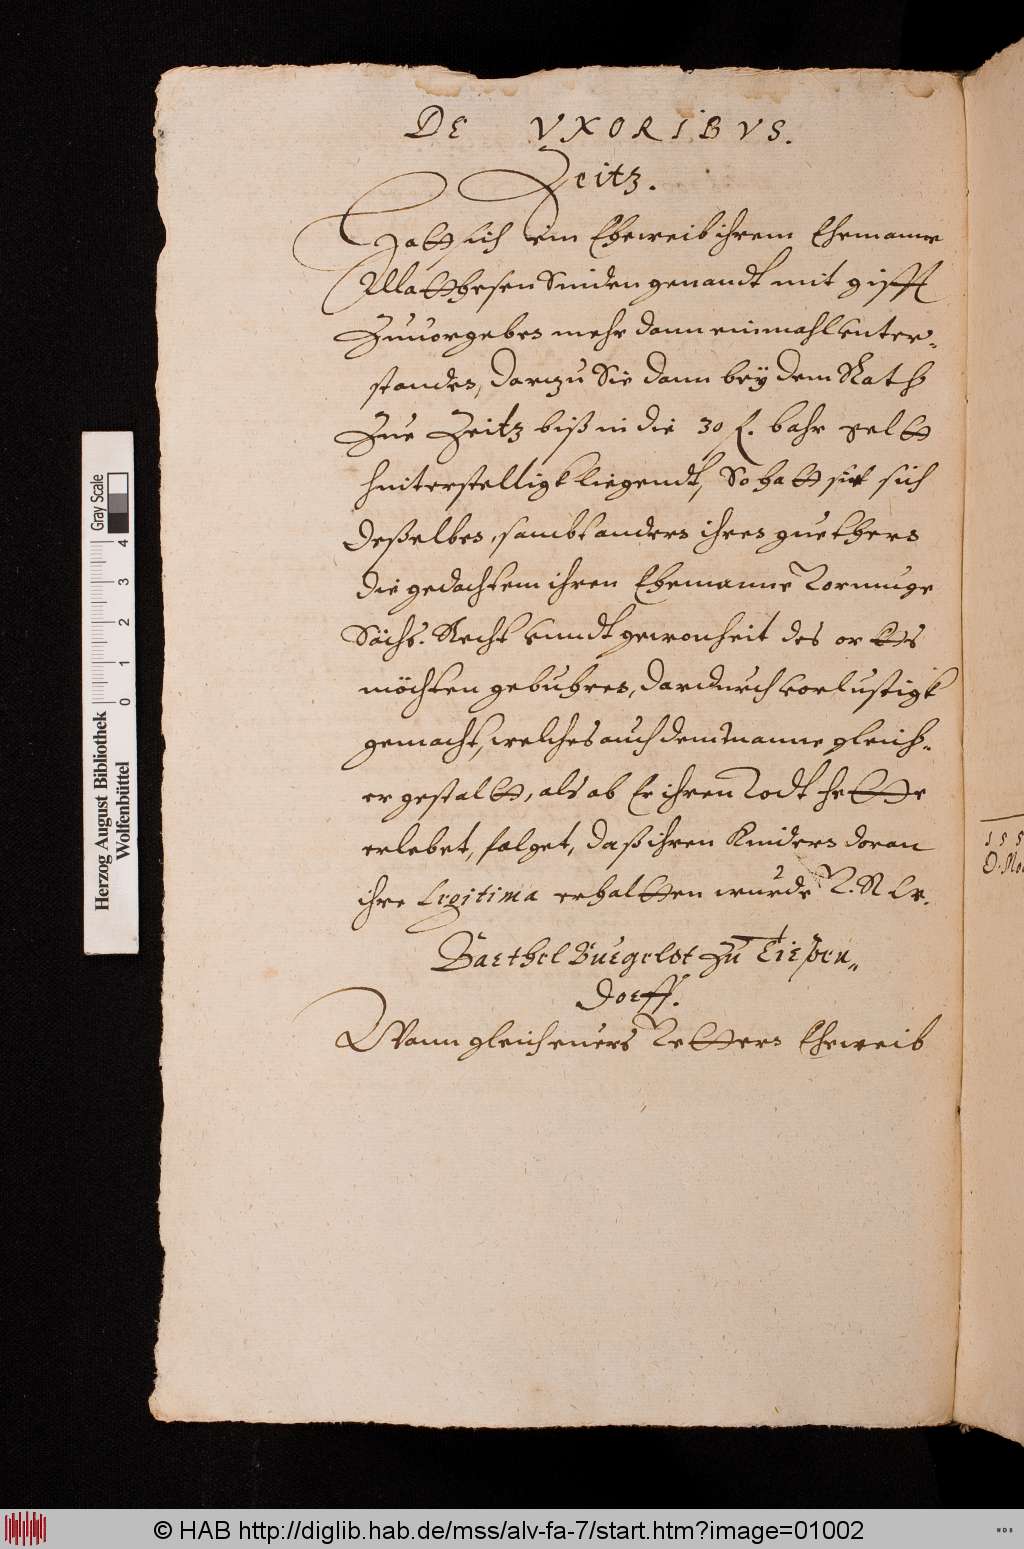 DE VXORIBVS.
Zeitz.
Hatt sich ein Eheweib ihrem Ehemanne
Matthesen Linden genandt mit gifft
Zuuorgeben mehr dann einmahl vnter-
standen, Darzu Sie dann bey dem Rath
Zue Zeitz biß in die 30 f. bahr gelt
hinterstelligk liegendt, So hatt sie sich
deßelben, sambt andern ihren guethern
die gedachtem ihren Ehemanne Vormuge
Sächs. Recht vnndt gewonheit des ortts
möchten gebuhren, dardurch vorlustigk
gemacht, welches auch dem manne gleich-
ergestaltt, als ob Er ihren Todt hette
erlebet, folget, daß ihren Kindern doran
ihre Legitima erhaltten wurde V. R W.
Barthel zu
dorff.
Wann gleich euers Vettern Eheweib
155
D. Mo
Gray Scale
0 1 2 3 4
Herzog August Bibliothek
Wolfenbüttel
© HAB http://diglib.hab.de/mss/alv-fa-7/start.htm?image=01002